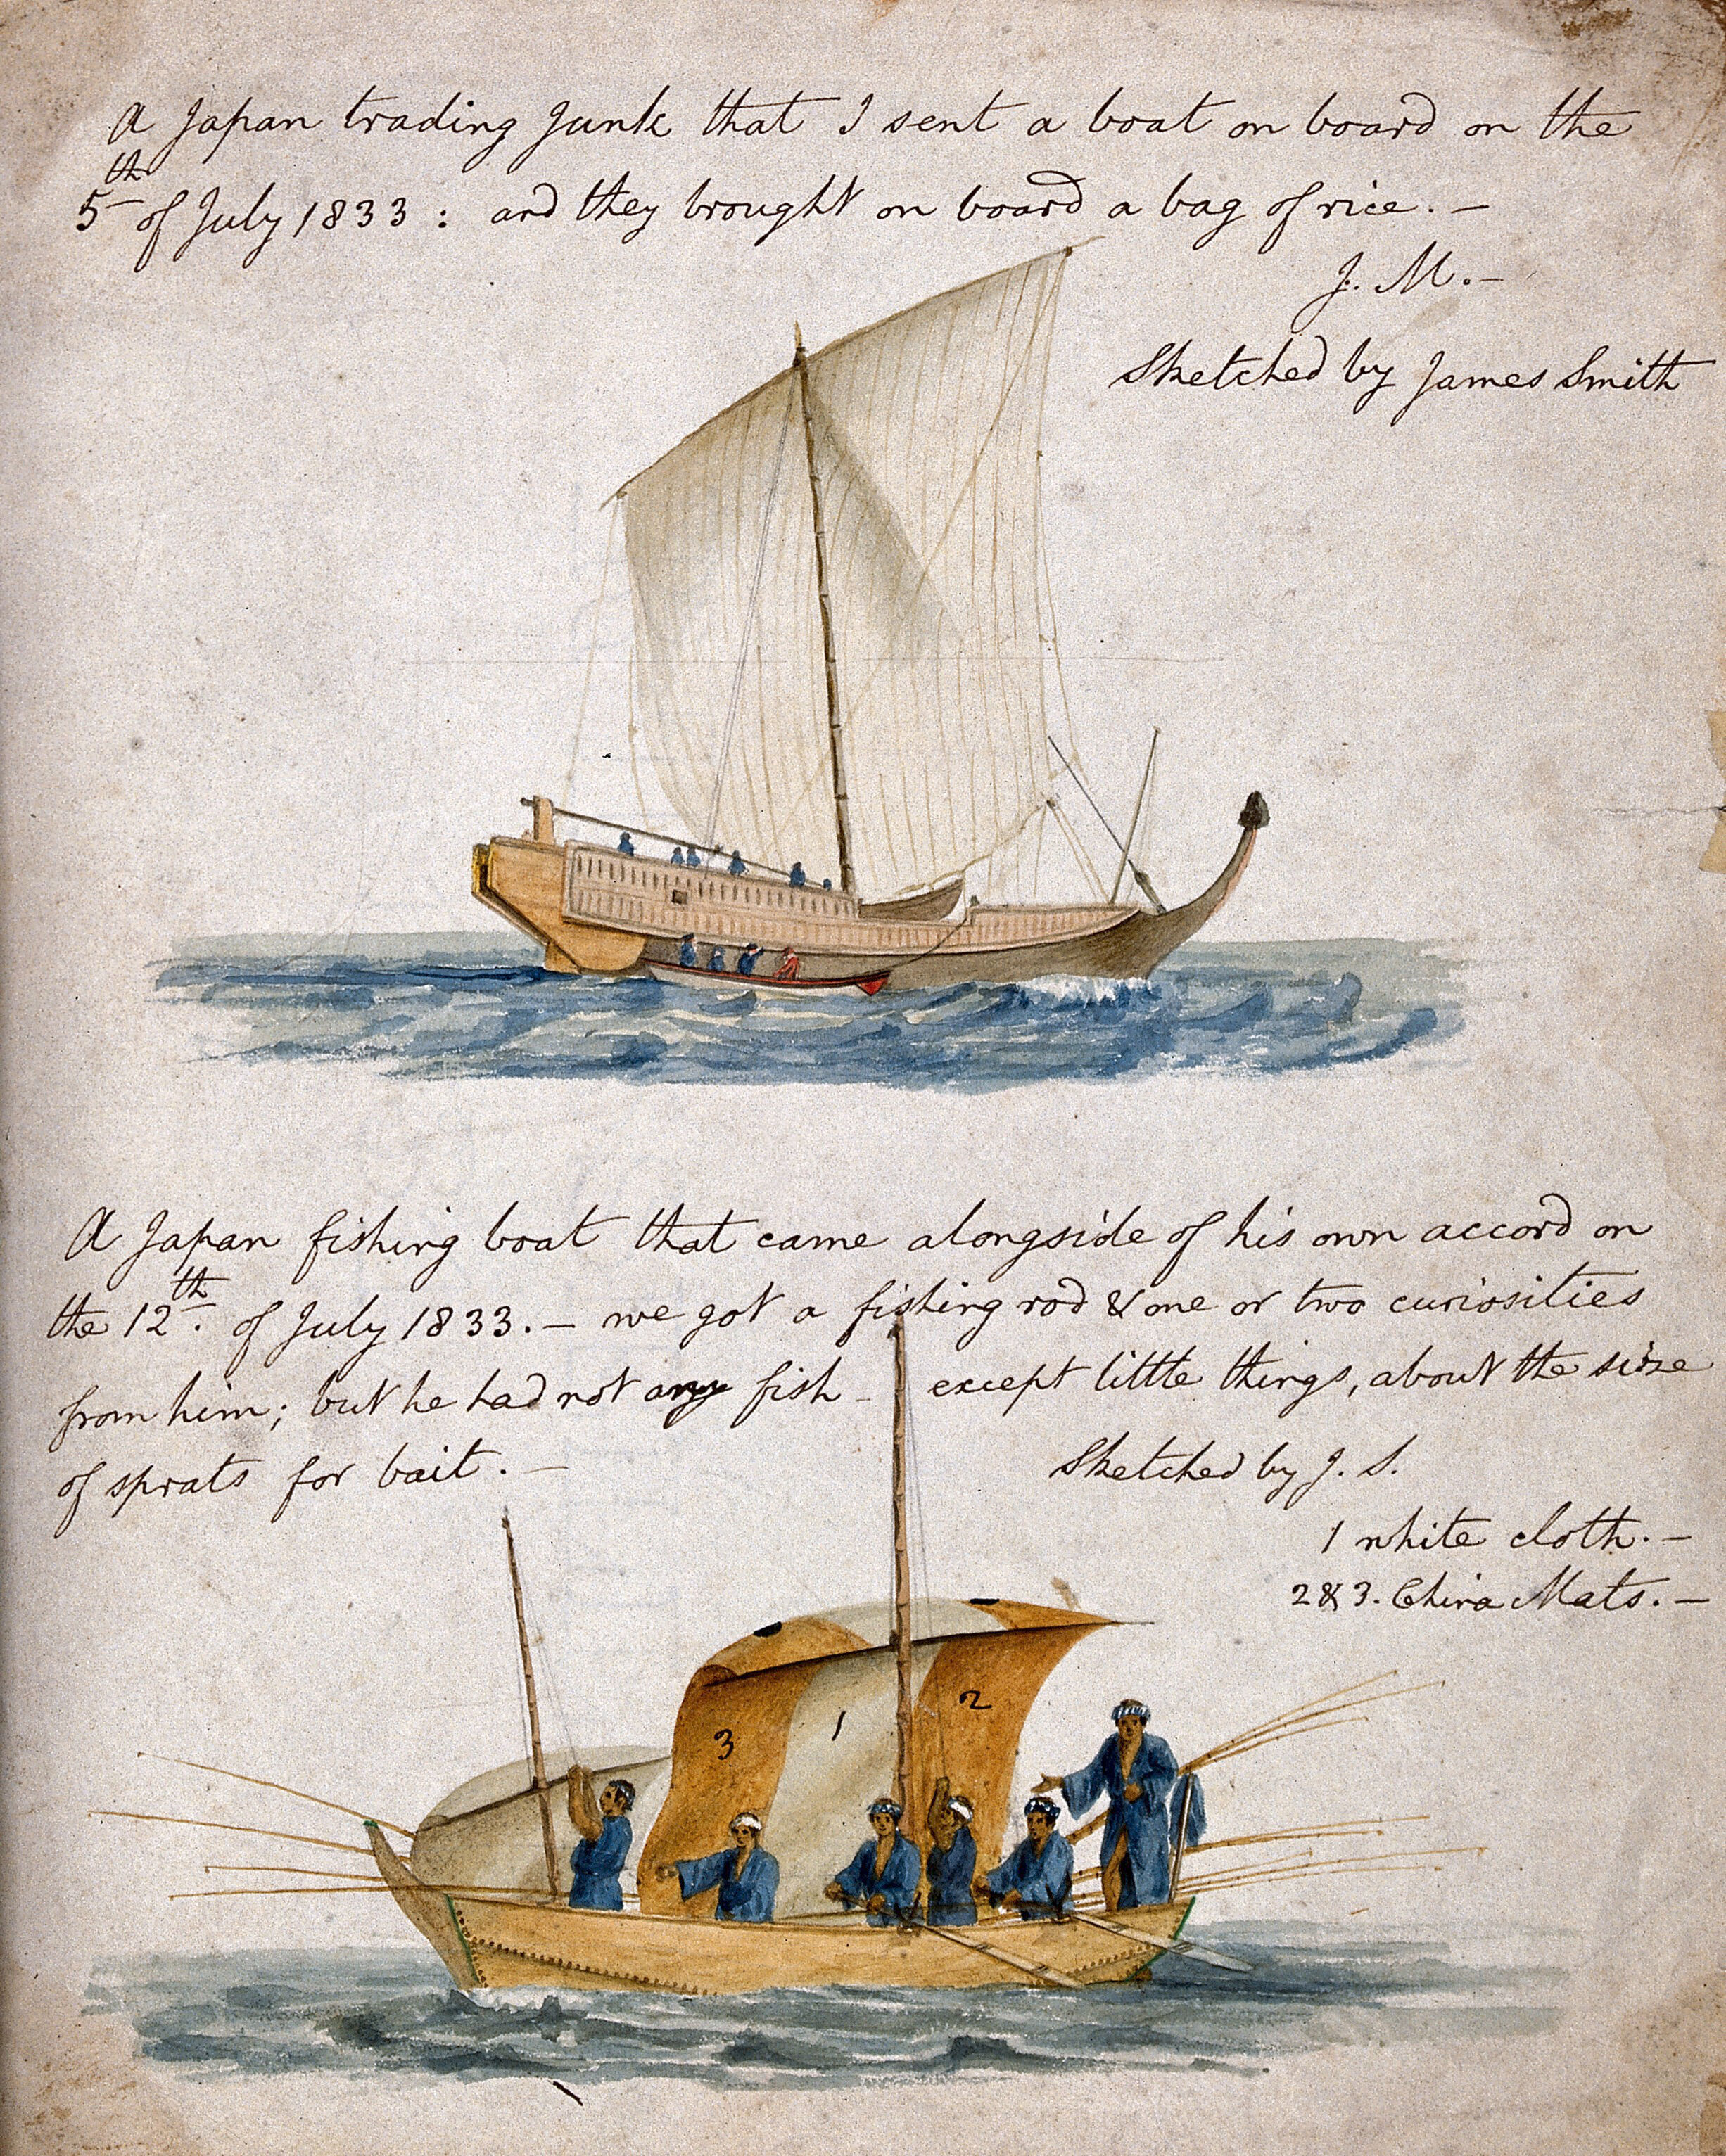 A Japan trading Junk that I sent a boat on board on the
5th of July 1833 : and they brought on board a bag of rice. —
J. M. —
Sketched by James Smith
A Japan fishing boat that came alongside of his own accord on
the 12th. of July 1833. — we got a fishing rod & one or two curiosities
from him; but he had not any fish — except little things, about the size
of sprats for bait. —
Sketched by J. S.
1 white cloth. —
2 & 3. China Mats. —
3 1 2